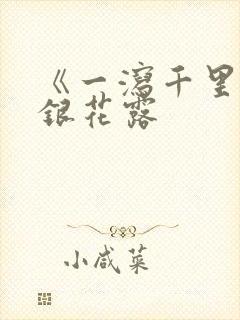 《一泻千里
银花露
小咸菜